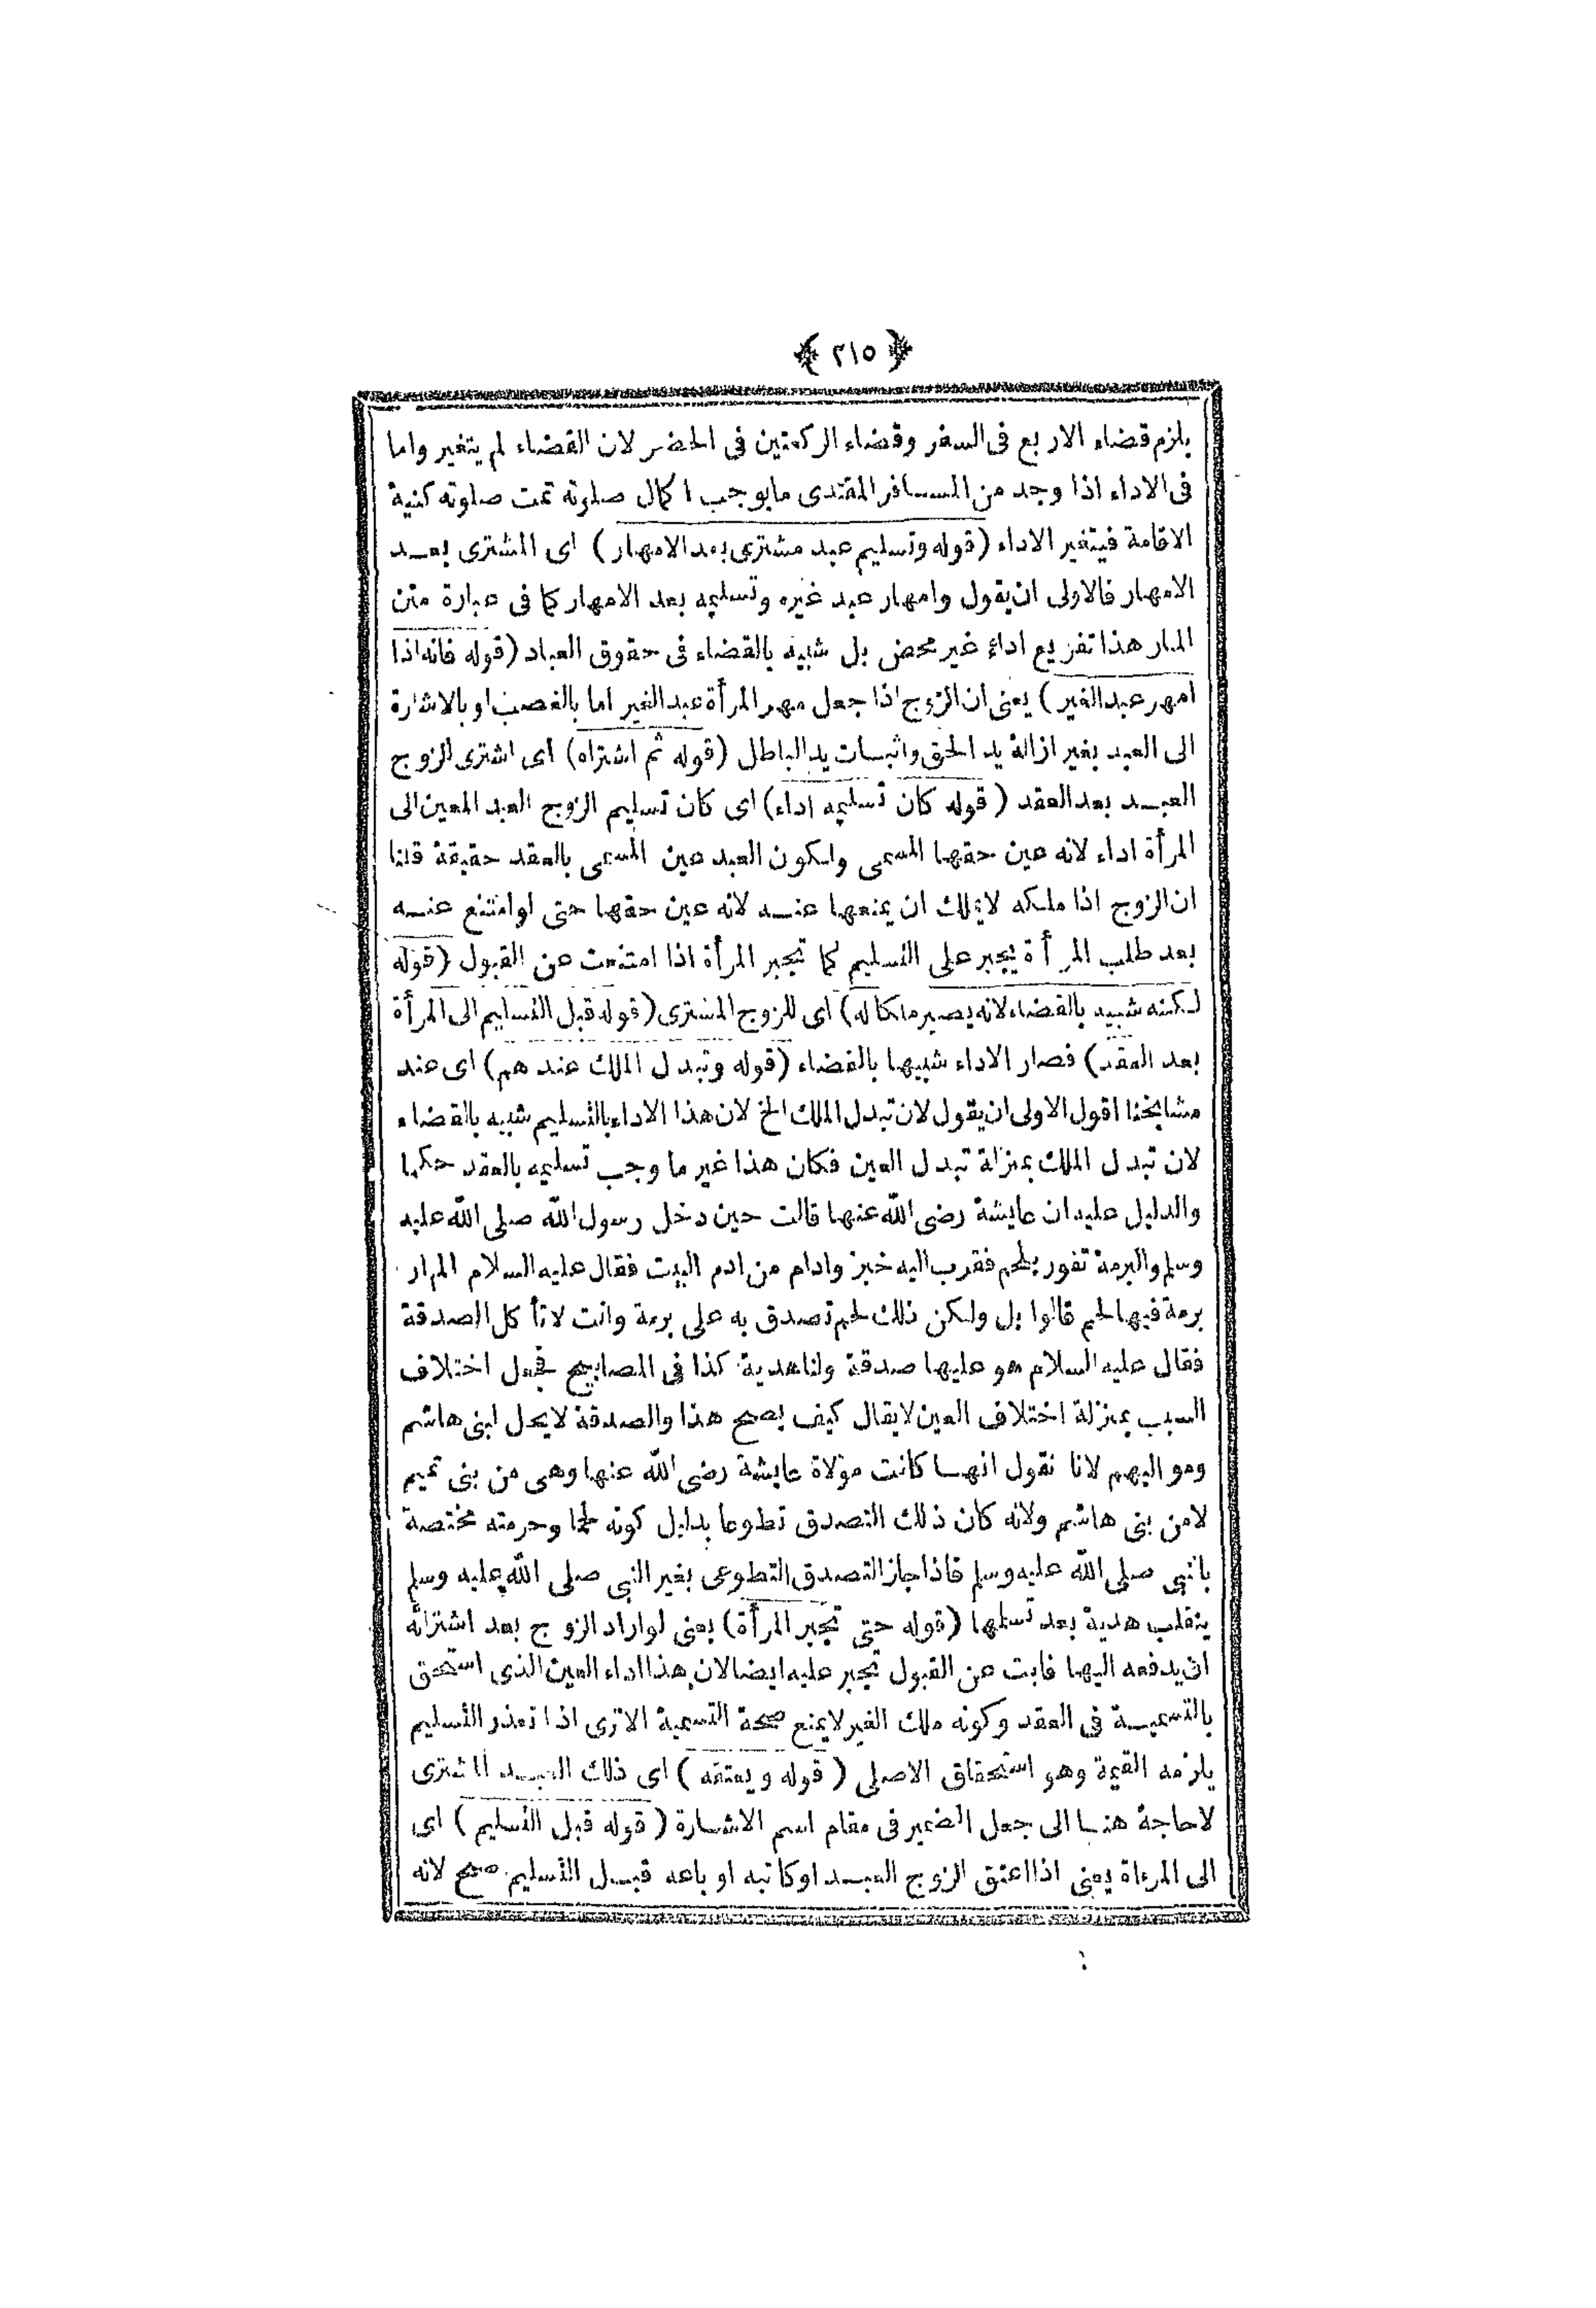 ﴿ ٢١٥ ﴾
يلزم قضاء الاربع فى السفر وقضاء الركعتين فى الحضر لان القضاء لم يتغير واما
فى الاداء اذا وجد من المسافر المقتدى مايوجب اكمال صلوته تمت صلوته كنية
الاقامة فيتغير الاداء (قوله وتسليم عبد مشترى بعد الامهار) اى المشترى بعد
الامهار فالاولى ان يقول وامهار عبد غيره وتسليمه بعد الامهار كما فى عبارة متن
المنار هذا تفريع اداء غير محض بل شبيه بالقضاء فى حقوق العباد (قوله فانه اذا
امهر عبد الغير) يعنى ان الزوج اذا جعل مهر المرأة عبد الغير اما بالغصب او بالاشارة
الى العبد بغير ازالة يد الحق واثبات يد الباطل (قوله ثم اشتراه) اى اشترى الزوج
العبد بعد العقد (قوله كان تسليمه اداء) اى كان تسليم الزوج العبد المعين الى
المرأة اداء لانه عين حقها المسمى ولكون العبد عين المسمى بالعقد حقيقة قلنا
ان الزوج اذا ملكه لايملك ان يمنعها عنه لانه عين حقها حتى لوامتنع عنه
بعد طلب المرأة يجبر على التسليم كما تجبر المرأة اذا امتنعت عن القبول (قوله
لكنه شبيه بالقضاء لانه يصير ملكا له) اى للزوج المشترى (قوله قبل التسليم الى المرأة
بعد العقد) فصار الاداء شبيها بالقضاء (قوله وتبدل الملك عندهم) اى عند
مشايخنا اقول الاولى ان يقول لان تبدل الملك الخ لان هذا الاداء بالتسليم شبيه بالقضاء
لان تبدل الملك بمنزلة تبدل العين فكان هذا غير ما وجب تسليمه بالعقد حكما
والدليل عليه ان عايشة رضى الله عنها قالت حين دخل رسول الله صلى الله عليه
وسلم والبرمة تفور بلحم فقرب اليه خبز وادام من ادم البيت فقال عليه السلام الم ار
برمة فيها لحم قالوا بل ولكن ذلك لحم تصدق به على برمة وانت لاتأكل الصدقة
فقال عليه السلام هو عليها صدقة ولنا هدية كذا فى المصابيح فجعل اختلاف
السبب بمنزلة اختلاف العين لايقال كيف يصح هذا والصدقة لايحل لبنى هاشم
ومواليهم لانا نقول انها كانت مولاة عايشة رضى الله عنها وهى من بنى تميم
لامن بنى هاشم ولانه كان ذلك التصدق تطوعا بدليل كونه لحما وحرمته مختصة
بالنبى صلى الله عليه وسلم فاذا جاز التصدق التطوعى بغير النبى صلى الله عليه وسلم
ينقلب هدية بعد تسلمها (قوله حتى تجبر المرأة) يعنى لواراد الزوج بعد اشترائه
ان يدفعه اليها فابت عن القبول تجبر عليه ايضا لان هذا اداء العين الذى استحق
بالتسمية فى العقد وكونه ملك الغير لايمنع صحة التسمية الاترى اذا تعذر التسليم
يلزمه القيمة وهو استحقاق الاصلى (قوله ويعتقه) اى ذلك العبد المشترى
لاحاجة هنا الى جعل الضمير فى مقام اسم الاشارة (قوله قبل التسليم) اى
الى المرءاة يعنى اذا اعتق الزوج العبد اوكاتبه او باعه قبل التسليم صح لانه